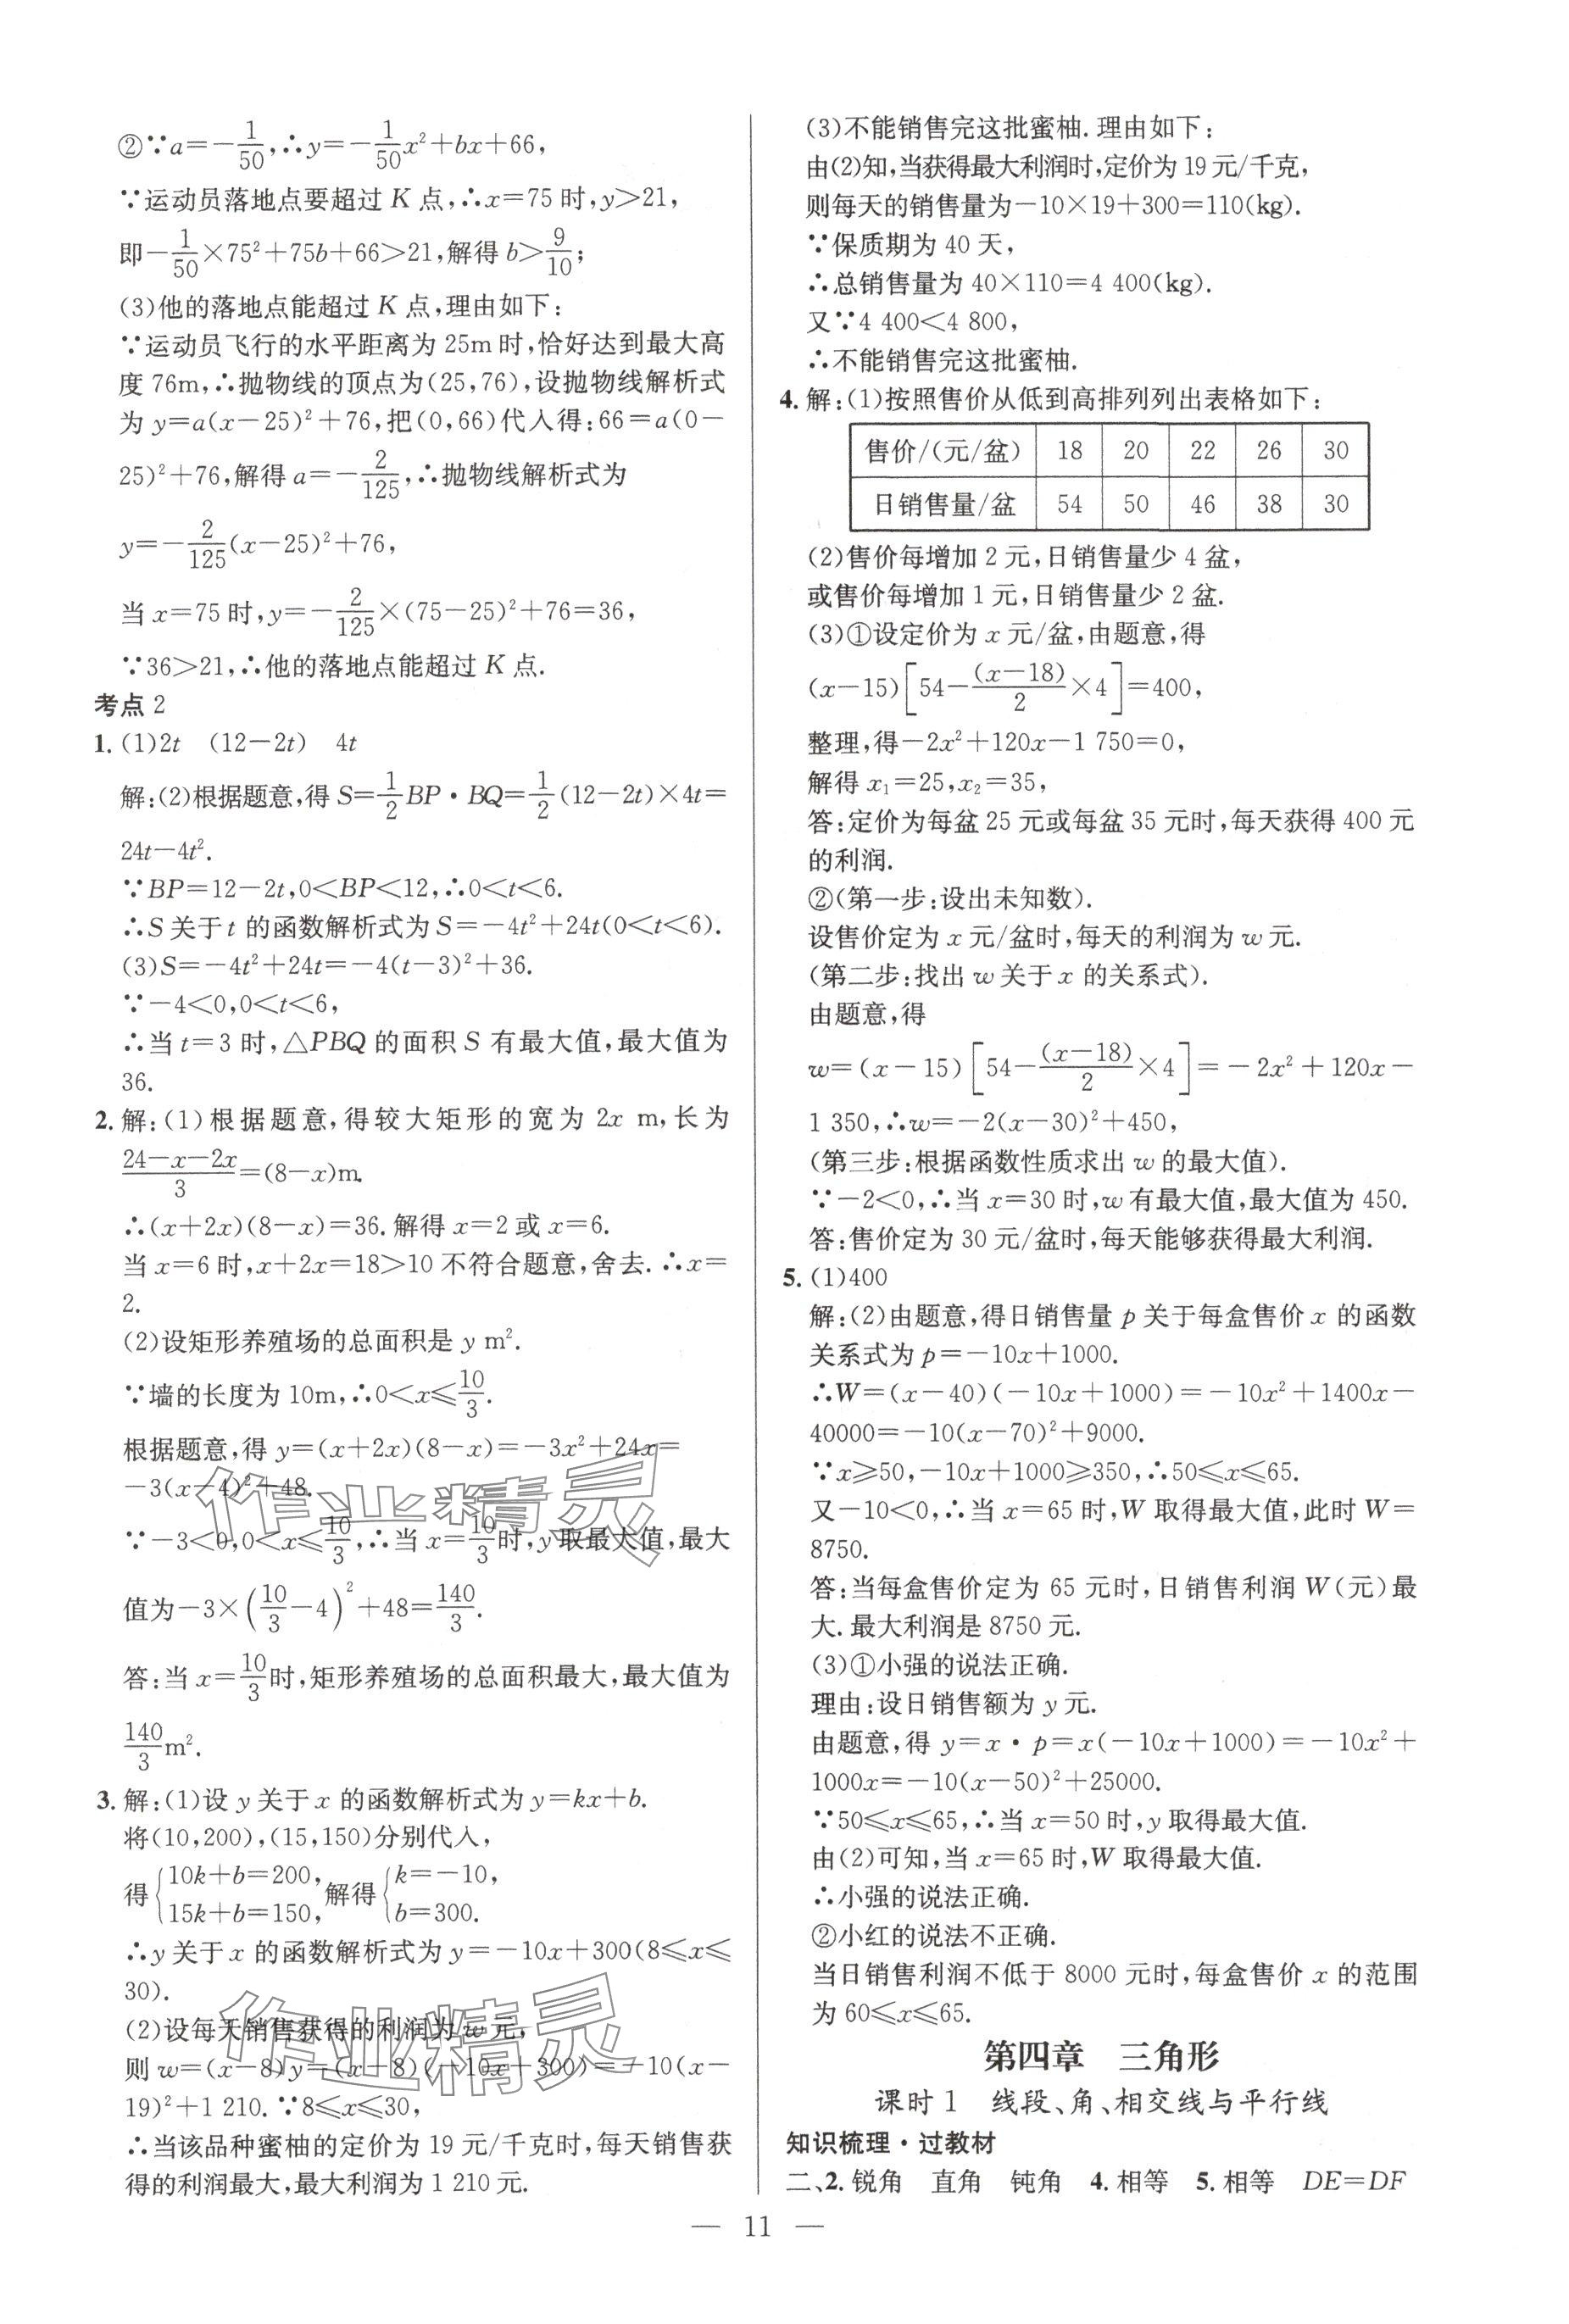 ②∵a=-1/50,∴y=-1/50x²+bx+66,
∵运动员落地点要超过 K 点,∴x=75 时,y>21,
即-1/50×75²+75b+66>21,解得 b>9/10;
(3)他的落地点能超过 K 点,理由如下:
∵运动员飞行的水平距离为 25m 时,恰好达到最大高
度 76m,∴抛物线的顶点为(25,76),设抛物线解析式
为 y=a(x-25)²+76,把(0,66)代入得:66=a(0-
25)²+76,解得 a=-2/125,∴抛物线解析式为
y=-2/125(x-25)²+76,
当 x=75 时,y=-2/125×(75-25)²+76=36,
∵36>21,∴他的落地点能超过 K 点.
考点 2
1. (1)2t (12-2t) 4t
解:(2)根据题意,得 S=1/2BP·BQ=1/2(12-2t)×4t=
24t-4t².
∵BP=12-2t,0<BP<12,∴0<t<6.
∴S 关于 t 的函数解析式为 S=-4t²+24t(0<t<6).
(3)S=-4t²+24t=-4(t-3)²+36.
∵-4<0,0<t<6,
∴当 t=3 时,△PBQ 的面积 S 有最大值,最大值为
36.
2. 解:(1)根据题意,得较大矩形的宽为 2x m,长为
(24-x-2x)/3=(8-x)m.
∴(x+2x)(8-x)=36. 解得 x=2 或 x=6.
当 x=6 时,x+2x=18>10 不符合题意,舍去. ∴x=
2.
(2)设矩形养殖场的总面积是 y m².
∵墙的长度为 10m,∴0<x≤10/3.
根据题意,得 y=(x+2x)(8-x)=-3x²+24x=
-3(x-4)²+48.
∵-3<0,0<x≤10/3,∴当 x=10/3时,y 取最大值,最大
值为-3×(10/3-4)²+48=140/3.
答:当 x=10/3时,矩形养殖场的总面积最大,最大值为
140/3m².
3. 解:(1)设 y 关于 x 的函数解析式为 y=kx+b.
将(10,200),(15,150)分别代入,
得{10k+b=200, 15k+b=150,解得{k=-10, b=300.
∴y 关于 x 的函数解析式为 y=-10x+300(8≤x≤
30).
(2)设每天销售获得的利润为 w 元,
则 w=(x-8)y=(x-8)(-10x+300)=-10(x-
19)²+1 210. ∵8≤x≤30,
∴当该品种蜜柚的定价为 19 元/千克时,每天销售获
得的利润最大,最大利润为 1 210 元.
(3)不能销售完这批蜜柚. 理由如下:
由(2)知,当获得最大利润时,定价为 19 元/千克,
则每天的销售量为-10×19+300=110(kg).
∵保质期为 40 天,
∴总销售量为 40×110=4 400(kg).
又∵4 400<4 800,
∴不能销售完这批蜜柚.
4. 解:(1)按照售价从低到高排列列出表格如下:
售价/(元/盆) 18 20 22 26 30
日销售量/盆 54 50 46 38 30
(2)售价每增加 2 元,日销售量少 4 盆,
或售价每增加 1 元,日销售量少 2 盆.
(3)①设定价为 x 元/盆,由题意,得
(x-15)[54-(x-18)/2×4]=400,
整理,得-2x²+120x-1 750=0,
解得 x₁=25,x₂=35,
答:定价为每盆 25 元或每盆 35 元时,每天获得 400 元
的利润.
②(第一步:设出未知数).
设售价定为 x 元/盆时,每天的利润为 w 元.
(第二步:找出 w 关于 x 的关系式).
由题意,得
w=(x-15)[54-(x-18)/2×4]=-2x²+120x-
1 350,∴w=-2(x-30)²+450,
(第三步:根据函数性质求出 w 的最大值).
∵-2<0,∴当 x=30 时,w 有最大值,最大值为 450.
答:售价定为 30 元/盆时,每天能够获得最大利润.
5. (1)400
解:(2)由题意,得日销售量 p 关于每盒售价 x 的函数
关系式为 p=-10x+1000.
∴W=(x-40)(-10x+1000)=-10x²+1400x-
40000=-10(x-70)²+9000.
∵x≥50,-10x+1000≥350,∴50≤x≤65.
又-10<0,∴当 x=65 时,W 取得最大值,此时 W=
8750.
答:当每盒售价定为 65 元时,日销售利润 W(元)最
大. 最大利润是 8750 元.
(3)①小强的说法正确.
理由:设日销售额为 y 元.
由题意,得 y=x·p=x(-10x+1000)=-10x²+
1000x=-10(x-50)²+25000.
∵50≤x≤65,∴当 x=50 时,y 取得最大值.
由(2)可知,当 x=65 时,W 取得最大值.
∴小强的说法正确.
②小红的说法不正确.
当日销售利润不低于 8000 元时,每盒售价 x 的范围
为 60≤x≤65.
第四章 三角形
课时 1 线段、角、相交线与平行线
知识梳理·过教材
二、2. 锐角 直角 钝角 4. 相等 5. 相等 DE=DF
— 11 —
作业精灵
作业精灵